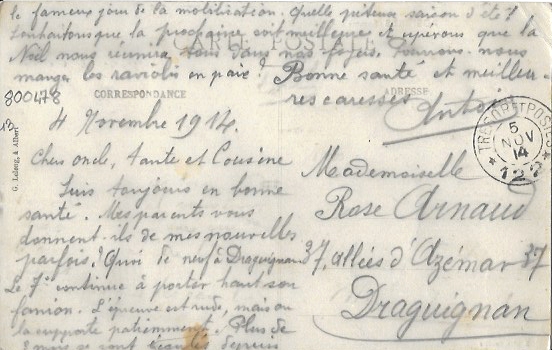 le fameux jour de la mobilisation. Quelle piteuse saison d'été !
Souhaitons que la prochaine soit meilleure et espérons que la
Noël nous réunira tous dans nos foyers. Pourrons-nous
manger les raviolis en paix ? Bonne santé et meilleu-
res caresses
Antoine
CARTE POSTALE
800478
13
CORRESPONDANCE
ADRESSE
G. Lelong, à Albert
TRESOR ET POSTES
5
NOV
14
* 127 *
4 Novembre 1914.
Chers oncle, tante et Cousine
Suis toujours en bonne
santé. Mes parents vous
donnent-ils de mes nouvelles
parfois ? Quoi de neuf à Draguignan ?
Le 7e continue à porter haut son
fanion. L'épreuve est rude, mais on
la supporte patiemment. Plus de
3 mois se sont écoulés depuis
Mademoiselle
Rose Arnaud
37, allées d'Azémar 37
Draguignan